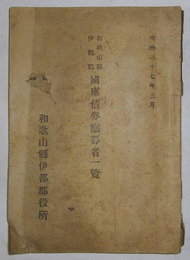 明治三十七年三月
和歌山縣
伊都郡
國庫債券應募者一覽
和歌山縣伊都郡役所